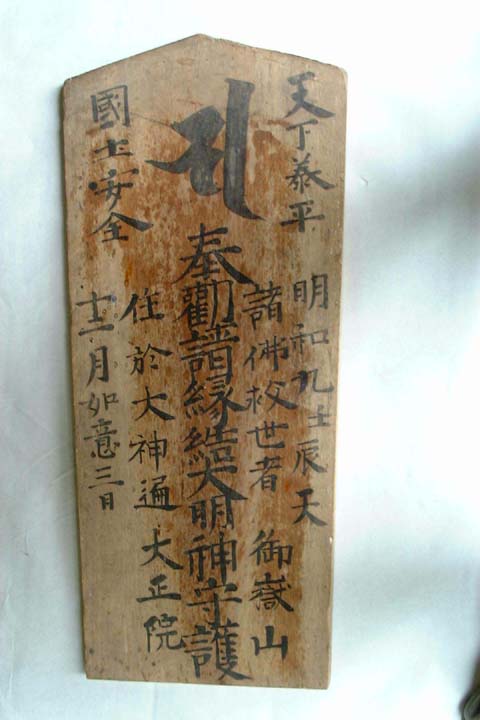 天下泰平
明和九壬辰天
諸佛救世者 御嶽山
奉勸請縁結大明神守護
住於大神通 大正院
國土安全
十二月如意三日